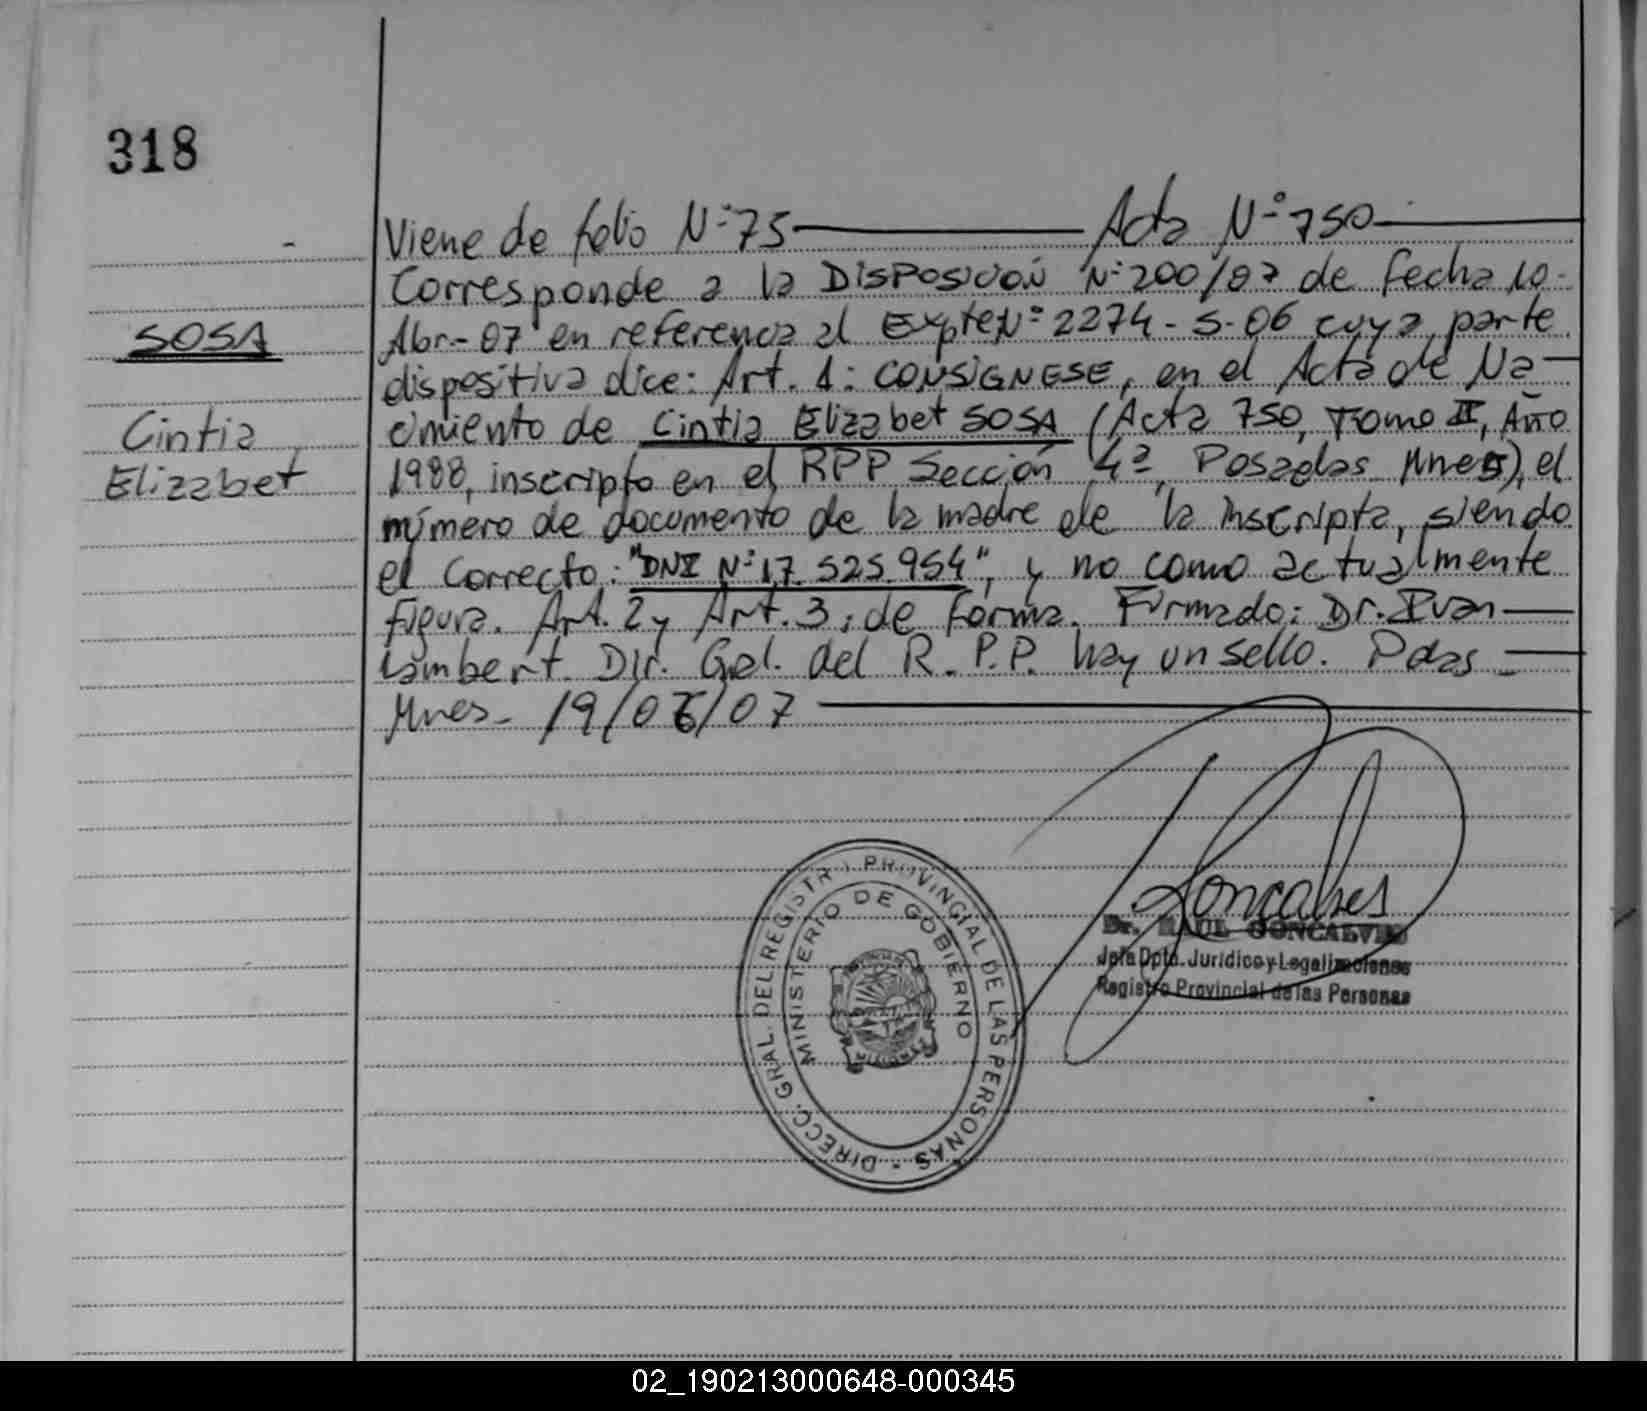 318
Viene de folio Nº 75 — Acta Nº 750 —
Corresponde a la DISPOSICIÓN Nº 200/07 de fecha 10-
Abr.-07 en referencia al Expte Nº 2274-S-06 cuya parte
dispositiva dice: Art. 1: CONSIGNESE, en el Acta de Na—
cimiento de Cintia Elizabet SOSA (Acta 750, Tomo II, Año
1988, inscripto en el RPP Sección 4ª, Posadas Mnes), el
número de documento de la madre de la inscripta, siendo
el correcto: "DNI Nº 17.525.954", y no como actualmente
figura. Art. 2 y Art. 3: de forma. Firmado: Dr. Ivan —
Lambert. Dir. Gal. del R.P.P. hay un sello. Pdas —
Mnes. 19/06/07 —
SOSA
Cintia
Elizabet
DIRECC. GRAL. DEL REGISTRO PROVINCIAL DE LAS PERSONAS -
MINISTERIO DE GOBIERNO
MISIONES
Goncalves
Dr. RAUL GONCALVES
Jefe Dpto. Jurídico y Legalizaciones
Registro Provincial de las Personas
02_190213000648-000345